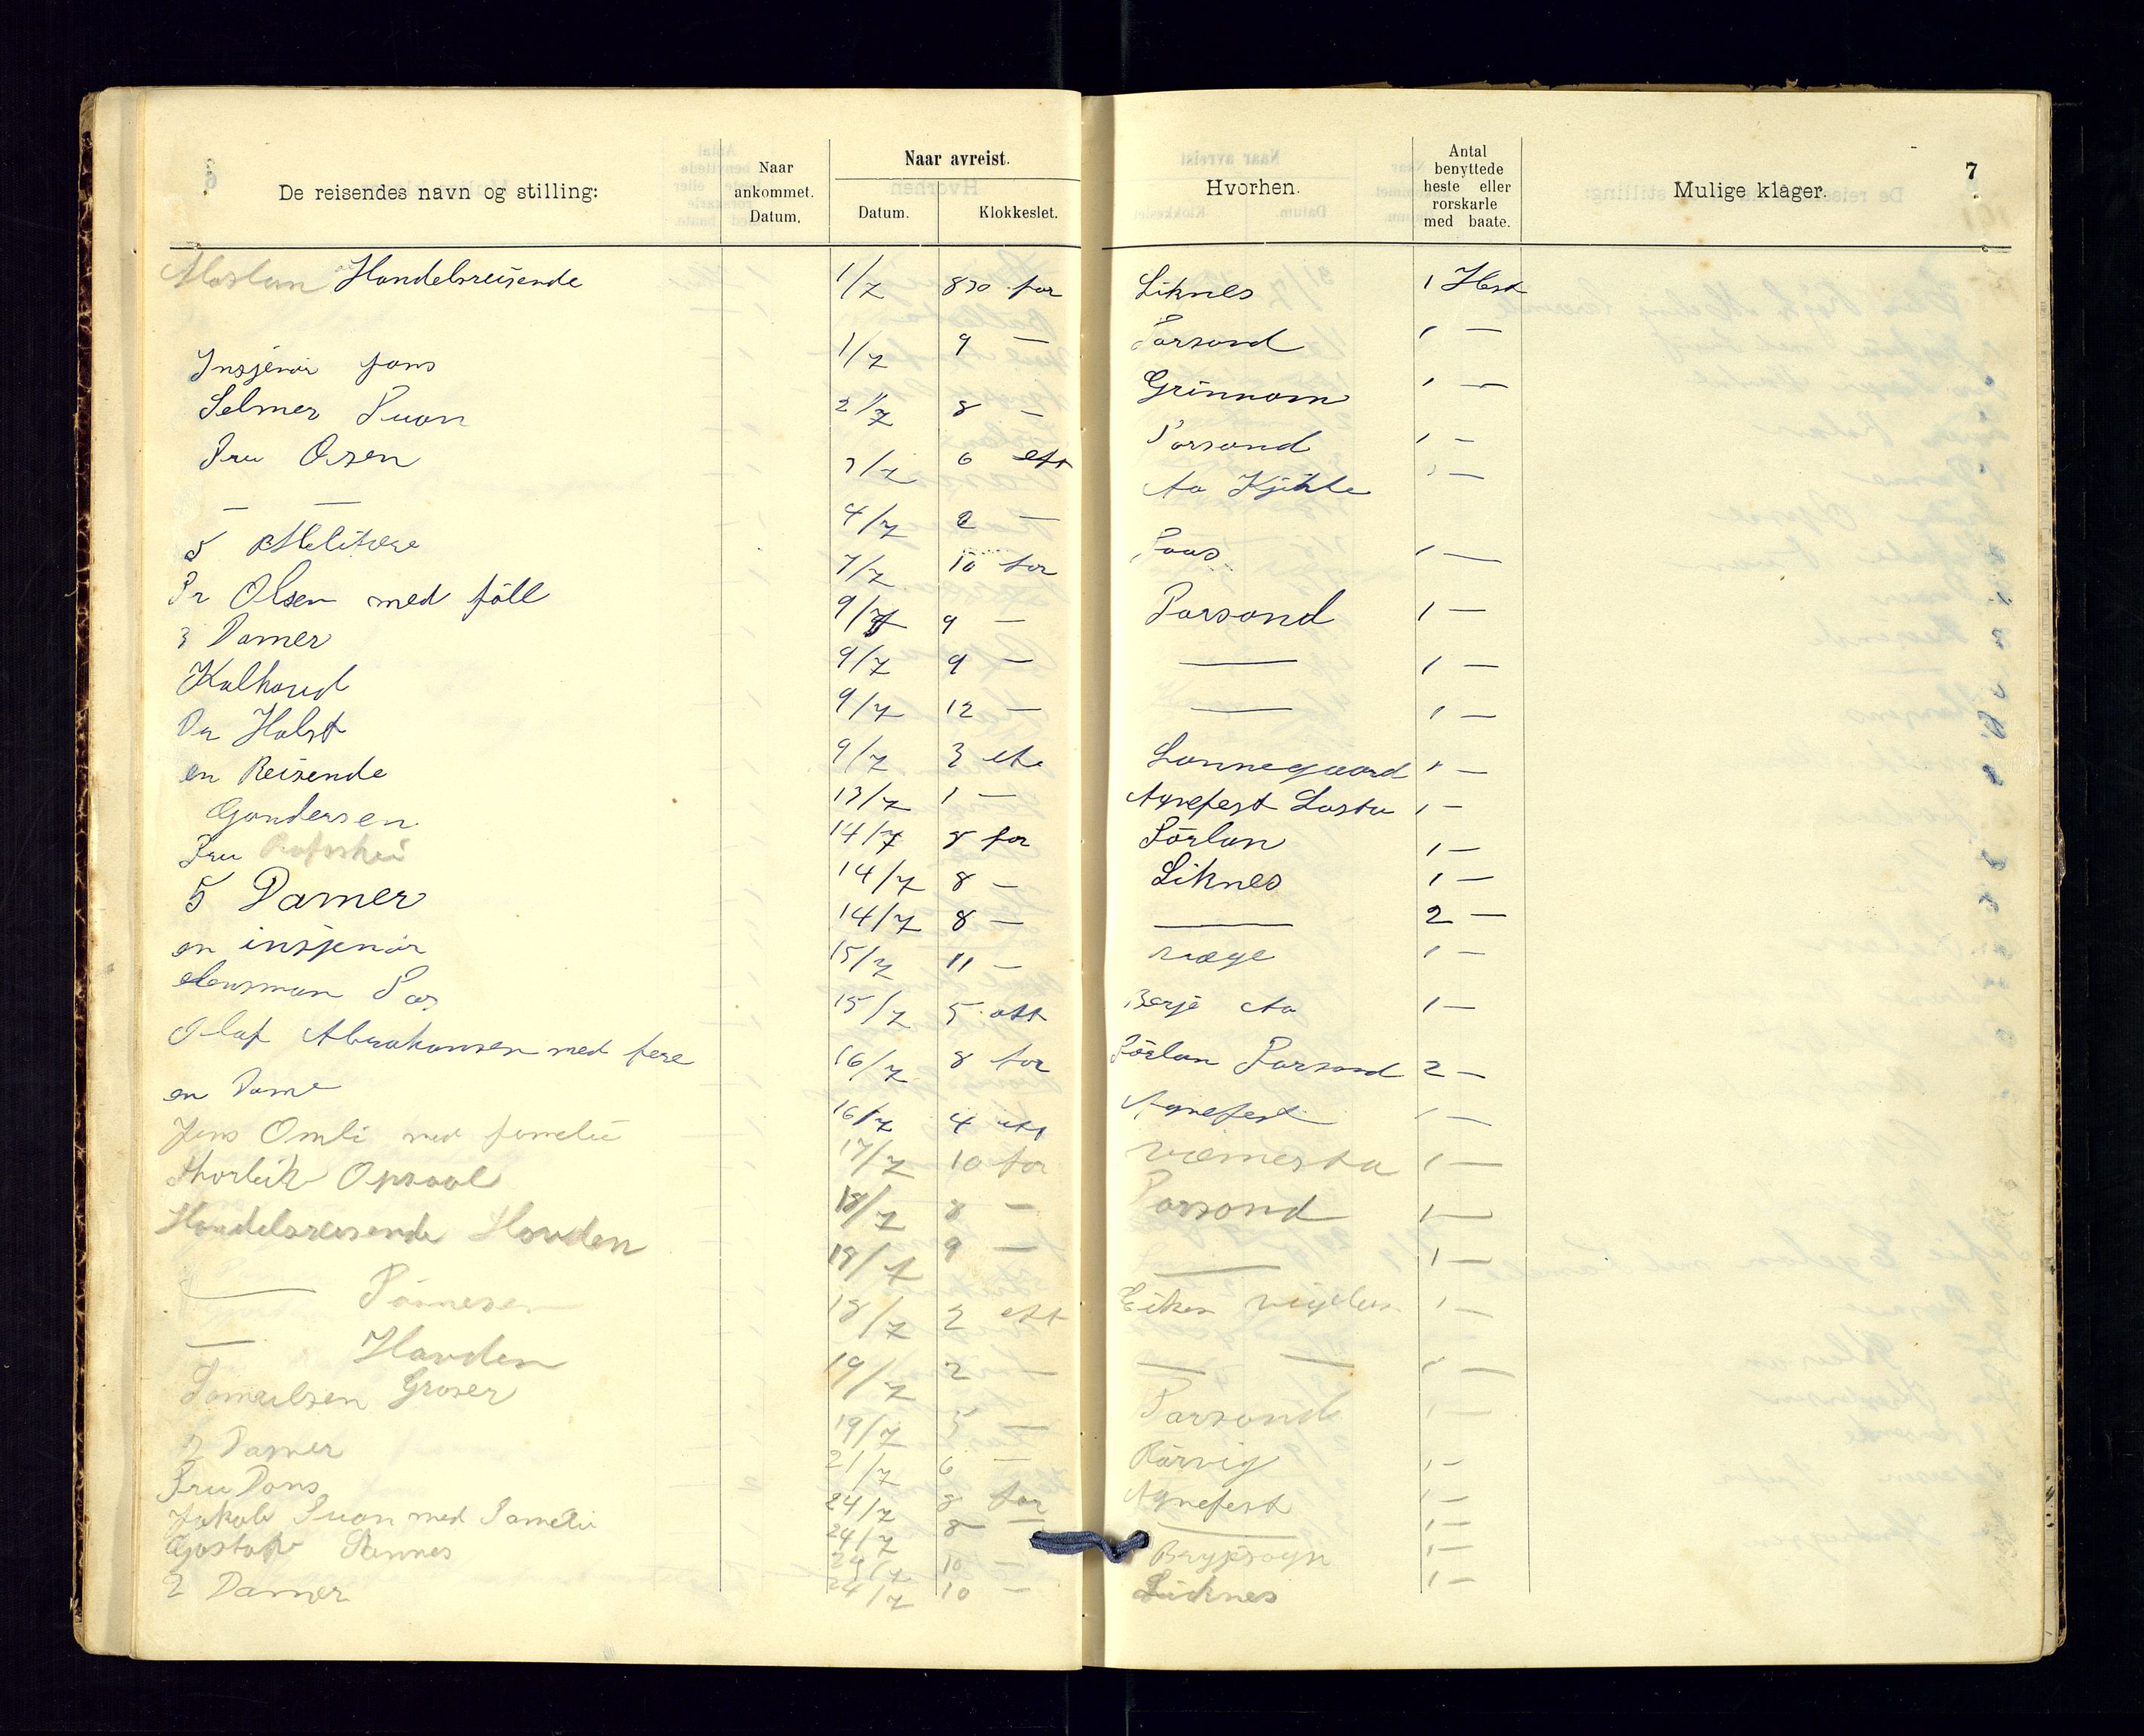 De reisendes navn og stilling: Naar ankommet. Datum. Naar avreist. Datum. Klokkeslet. Hvorhen. Antal benyttede heste eller rorskarle med baate. Mulige klager. 7
Handelsreisende 1/7 830 for Liknes 1 Hest
Insjenör 1/7 9 — Farsond 1 —
Selmer 2/7 8 — Grinnom 1 —
Fru Olsen 3/7 6 eft Farsond 1 —
— — 4/7 — Aa —
5 Melitære 7/7 10 for 1 —
Fr Olsen med föll 9/7 9 — Farsond 1 —
3 Damer 9/7 9 — — 1 —
Kalhovd 9/7 12 — — 1 —
Dr Holst 9/7 3 Lonnegaard 1 —
en Reisende 13/7 1 — Agnefest Lasta 1 —
Gondersen 14/7 8 for Sörlan 1 —
Fru 14/7 8 — Liknes 1 —
5 Damer 14/7 8 — — 2 —
en insjenör 15/7 11 — 1 —
15/7 5 ett Aa 1 —
Olaf Abrahamsen med fere 16/7 8 for Sörlan Farsond 2 —
en Dame 16/7 4 ett Agnefest 1 —
Jens Omli med famelie 17/7 10 for 1 —
Thorleik Opsaal 18/7 8 — Farsond 1 —
Handelsreisende Hovden 18/7 9 — — 1 —
— 18/7 2 ett Eiken 1 —
— Hovden 19/7 2 — — — 1 —
Samuelsen Groser 19/7 5 — Farsond 1 —
2 Damer 21/7 6 — Rörvig 1 —
Fru Dons 24/7 8 for Agnefest 1 —
Jakob med Famelie 24/7 8 — — 1 —
Gustav 24/7 10 — 1 —
2 Damer 24/7 10 — Liknes 1 —